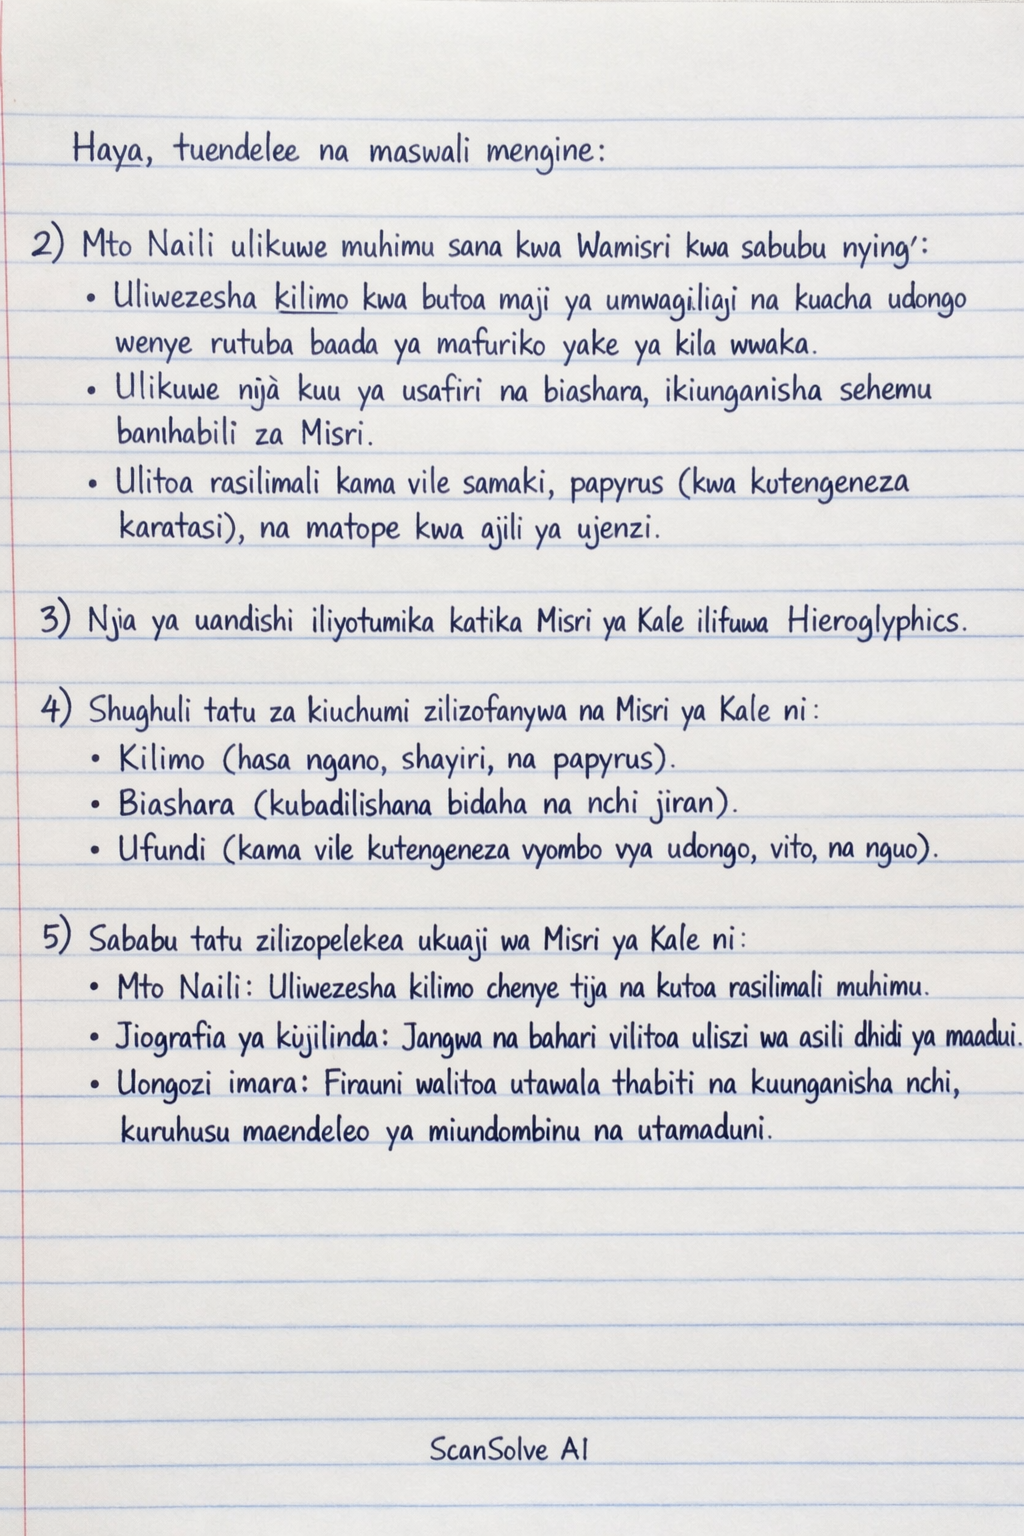 Haya, tuendelee na maswali mengine:
2) Mto Naili ulikuwe muhimu sana kwa Wamisri kwa sabubu nying':
• Uliwezesha kilimo kwa butoa maji ya umwagiliaji na kuacha udongo
wenye rutuba baada ya mafuriko yake ya kila wwaka.
• Ulikuwe nijà kuu ya usafiri na biashara, ikiunganisha sehemu
banıhabili za Misri.
• Ulitoa rasilimali kama vile samaki, papyrus (kwa kutengeneza
karatasi), na matope kwa ajili ya ujenzi.
3) Njia ya uandishi iliyotumika katika Misri ya Kale ilifuwa Hieroglyphics.
4) Shughuli tatu za kiuchumi zilizofanywa na Misri ya Kale ni:
• Kilimo (hasa ngano, shayiri, na papyrus).
• Biashara (kubadilishana bidaha na nchi jiran).
• Ufundi (kama vile kutengeneza vyombo vya udongo, vito, na nguo).
5) Sababu tatu zilizopelekea ukuaji wa Misri ya Kale ni:
• Mto Naili: Uliwezesha kilimo chenye tija na kutoa rasilimali muhimu.
• Jiografia ya kujilinda: Jangwa na bahari vilitoa uliszi wa asili dhidi ya maadui.
• Uongozi imara: Firauni walitoa utawala thabiti na kuunganisha nchi,
kuruhusu maendeleo ya miundombinu na utamaduni.
ScanSolve AI